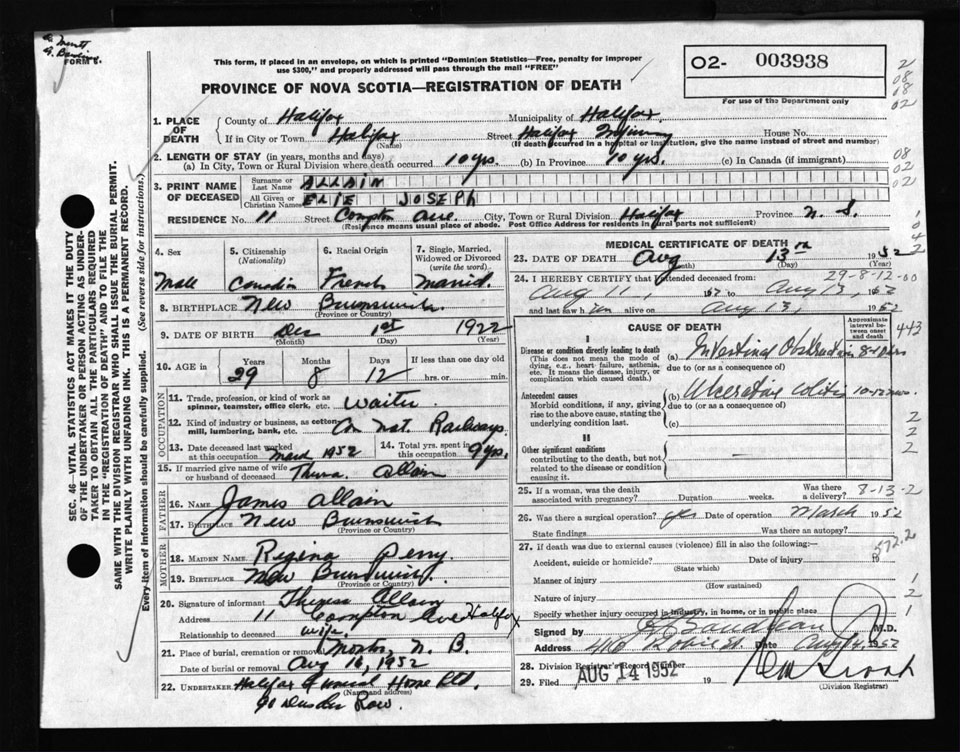 FORM 6.
This form, if placed in an envelope, on which is printed "Dominion Statistics—Free, penalty for improper
use $300," and properly addressed will pass through the mail "FREE"
O2- 003938
For use of the Department only
PROVINCE OF NOVA SCOTIA—REGISTRATION OF DEATH
SEC. 46—VITAL STATISTICS ACT MAKES IT THE DUTY
OF THE UNDERTAKER OR PERSON ACTING AS UNDER-
TAKER TO OBTAIN ALL THE PARTICULARS REQUIRED
IN THE "REGISTRATION OF DEATH" AND TO FILE THE
SAME WITH THE DIVISION REGISTRAR WHO SHALL ISSUE THE BURIAL PERMIT.
WRITE PLAINLY WITH UNFADING INK. THIS IS A PERMANENT RECORD.
Every item of information should be carefully supplied. (See reverse side for instructions.)
1. PLACE OF DEATH
County of Halifax Municipality of Halifax
If in City or Town Halifax Street Halifax Infirmary House No.
(Name) (If death occurred in a hospital or institution, give the name instead of street and number)
2. LENGTH OF STAY (in years, months and days)
(a) In City, Town or Rural Division where death occurred 10 yrs. (b) In Province 10 yrs. (c) In Canada (if immigrant)
3. PRINT NAME OF DECEASED
Surname or Last Name ALLAIN
All Given or Christian Names ELIE JOSEPH
RESIDENCE No. 11 Street Compton Ave. City, Town or Rural Division Halifax Province N. S.
(Residence means usual place of abode. Post Office Address for residents in rural parts not sufficient)
4. Sex Male
5. Citizenship (Nationality) Canadian
6. Racial Origin French
7. Single, Married, Widowed or Divorced (write the word) Married.
8. BIRTHPLACE New Brunswick
(Province or Country)
9. DATE OF BIRTH Dec 1st 1922
(Month) (Day) (Year)
10. AGE in Years 29 Months 8 Days 12 If less than one day old hrs. or min.
OCCUPATION
11. Trade, profession, or kind of work as spinner, teamster, office clerk, etc. Waiter
12. Kind of industry or business, as cotton mill, lumbering, bank, etc. Can Nat. Railways
13. Date deceased last worked at this occupation March 1952
14. Total yrs. spent in this occupation 9 yrs.
15. If married give name of wife or husband of deceased Allain
FATHER
16. Name James Allain
17. Birthplace New Brunswick
(Province or Country)
MOTHER
18. Maiden Name Regina Perry.
19. Birthplace New Brunswick.
(Province or Country)
20. Signature of informant Theresa Allain
Address 11 Compton Ave Halifax
Relationship to deceased wife.
21. Place of burial, cremation or removal N. B.
Date of burial or removal Aug 16, 1952
22. Undertaker Halifax Funeral Home Ltd.
(Name and address)
90 Row.
MEDICAL CERTIFICATE OF DEATH
23. DATE OF DEATH Aug 13th 1952
(Month) (Day) (Year)
29-8-12-00
24. I HEREBY CERTIFY that I attended deceased from:
Aug 11, 1952 to Aug 13, 1952
and last saw him alive on Aug 13, 1952
CAUSE OF DEATH
Approximate interval between onset and death
443
I
Disease or condition directly leading to death
(This does not mean the mode of dying, e.g., heart failure, asthenia, etc. It means the disease, injury, or complication which caused death.)
(a) Intestinal Obstruction
due to (or as a consequence of)
Antecedent causes
Morbid conditions, if any, giving rise to the above cause, stating the underlying condition last.
(b) Ulcerative colitis
due to (or as a consequence of)
(c)
II
Other significant conditions
contributing to the death, but not related to the disease or condition causing it.
25. If a woman, was the death associated with pregnancy? Duration weeks. Was there a delivery? 8-13-2
26. Was there a surgical operation? yes Date of operation March 1952
State findings Was there an autopsy?
572.2
27. If death was due to external causes (violence) fill in also the following:
Accident, suicide or homicide? Date of injury 19
(State which)
Manner of injury
(How sustained)
Nature of injury
Specify whether injury occurred in industry, in home, or in public place
Signed by M.D.
Address Robie St. Date Aug 14, 1952
28. Division Registrar's Record Number
29. Filed AUG 14 1952 19
(Division Registrar)